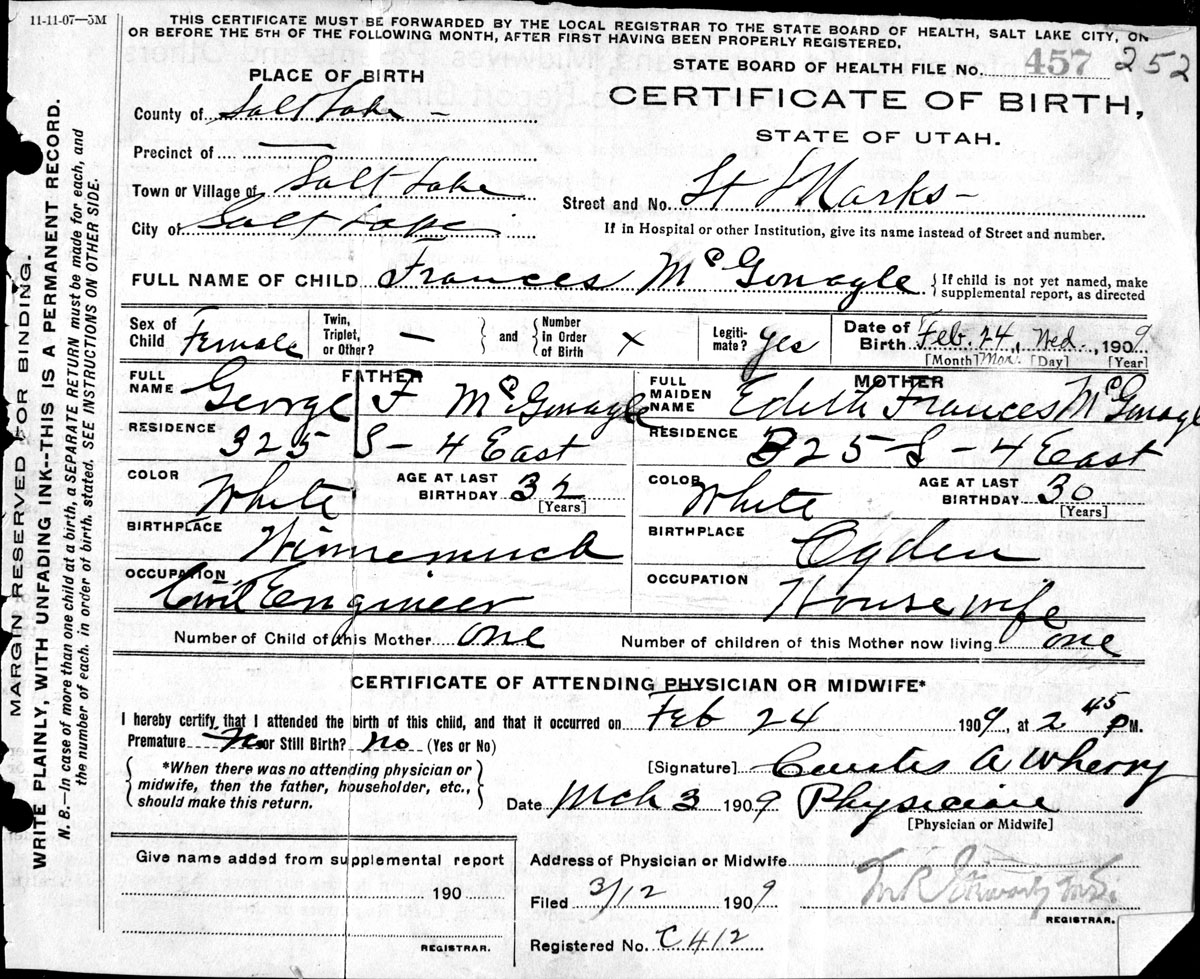 11-11-07—5M
THIS CERTIFICATE MUST BE FORWARDED BY THE LOCAL REGISTRAR TO THE STATE BOARD OF HEALTH, SALT LAKE CITY, ON
OR BEFORE THE 5TH OF THE FOLLOWING MONTH, AFTER FIRST HAVING BEEN PROPERLY REGISTERED.
STATE BOARD OF HEALTH FILE No. 457 252
CERTIFICATE OF BIRTH,
STATE OF UTAH.
PLACE OF BIRTH
County of Salt Lake —
Precinct of —
Town or Village of Salt Lake
City of Salt Lake
Street and No. St Marks —
If in Hospital or other Institution, give its name instead of Street and number.
FULL NAME OF CHILD Frances McGonagle { If child is not yet named, make
supplemental report, as directed
Sex of Child Female
Twin, Triplet, or Other? — } and { Number in Order of Birth x
Legiti-mate? yes
Date of Birth Feb. 24, Wed., 1909
[Month] [Day] [Year]
FATHER
FULL NAME George F McGonagle
RESIDENCE 325 S - 4 East
COLOR White AGE AT LAST BIRTHDAY 32 [Years]
BIRTHPLACE Winnemucca
OCCUPATION Civil Engineer
MOTHER
FULL MAIDEN NAME Edith Frances McGonagle
RESIDENCE 325 - S - 4 East
COLOR White AGE AT LAST BIRTHDAY 30 [Years]
BIRTHPLACE Ogden
OCCUPATION Housewife
Number of Child of this Mother one Number of children of this Mother now living one
CERTIFICATE OF ATTENDING PHYSICIAN OR MIDWIFE*
I hereby certify that I attended the birth of this child, and that it occurred on Feb 24 1909, at 2 45 PM.
Premature No or Still Birth? no (Yes or No)
{ *When there was no attending physician or
midwife, then the father, householder, etc.,
should make this return. }
[Signature] Curtis A Wherry
Date Mch 3 1909 Physician
[Physician or Midwife]
Give name added from supplemental report
190
REGISTRAR.
Address of Physician or Midwife
Filed 3/12 1909
REGISTRAR.
Registered No. C412
MARGIN RESERVED FOR BINDING.
WRITE PLAINLY, WITH UNFADING INK--THIS IS A PERMANENT RECORD.
N. B.—In case of more than one child at a birth, a SEPARATE RETURN must be made for each, and
the number of each, in order of birth, stated. SEE INSTRUCTIONS ON OTHER SIDE.